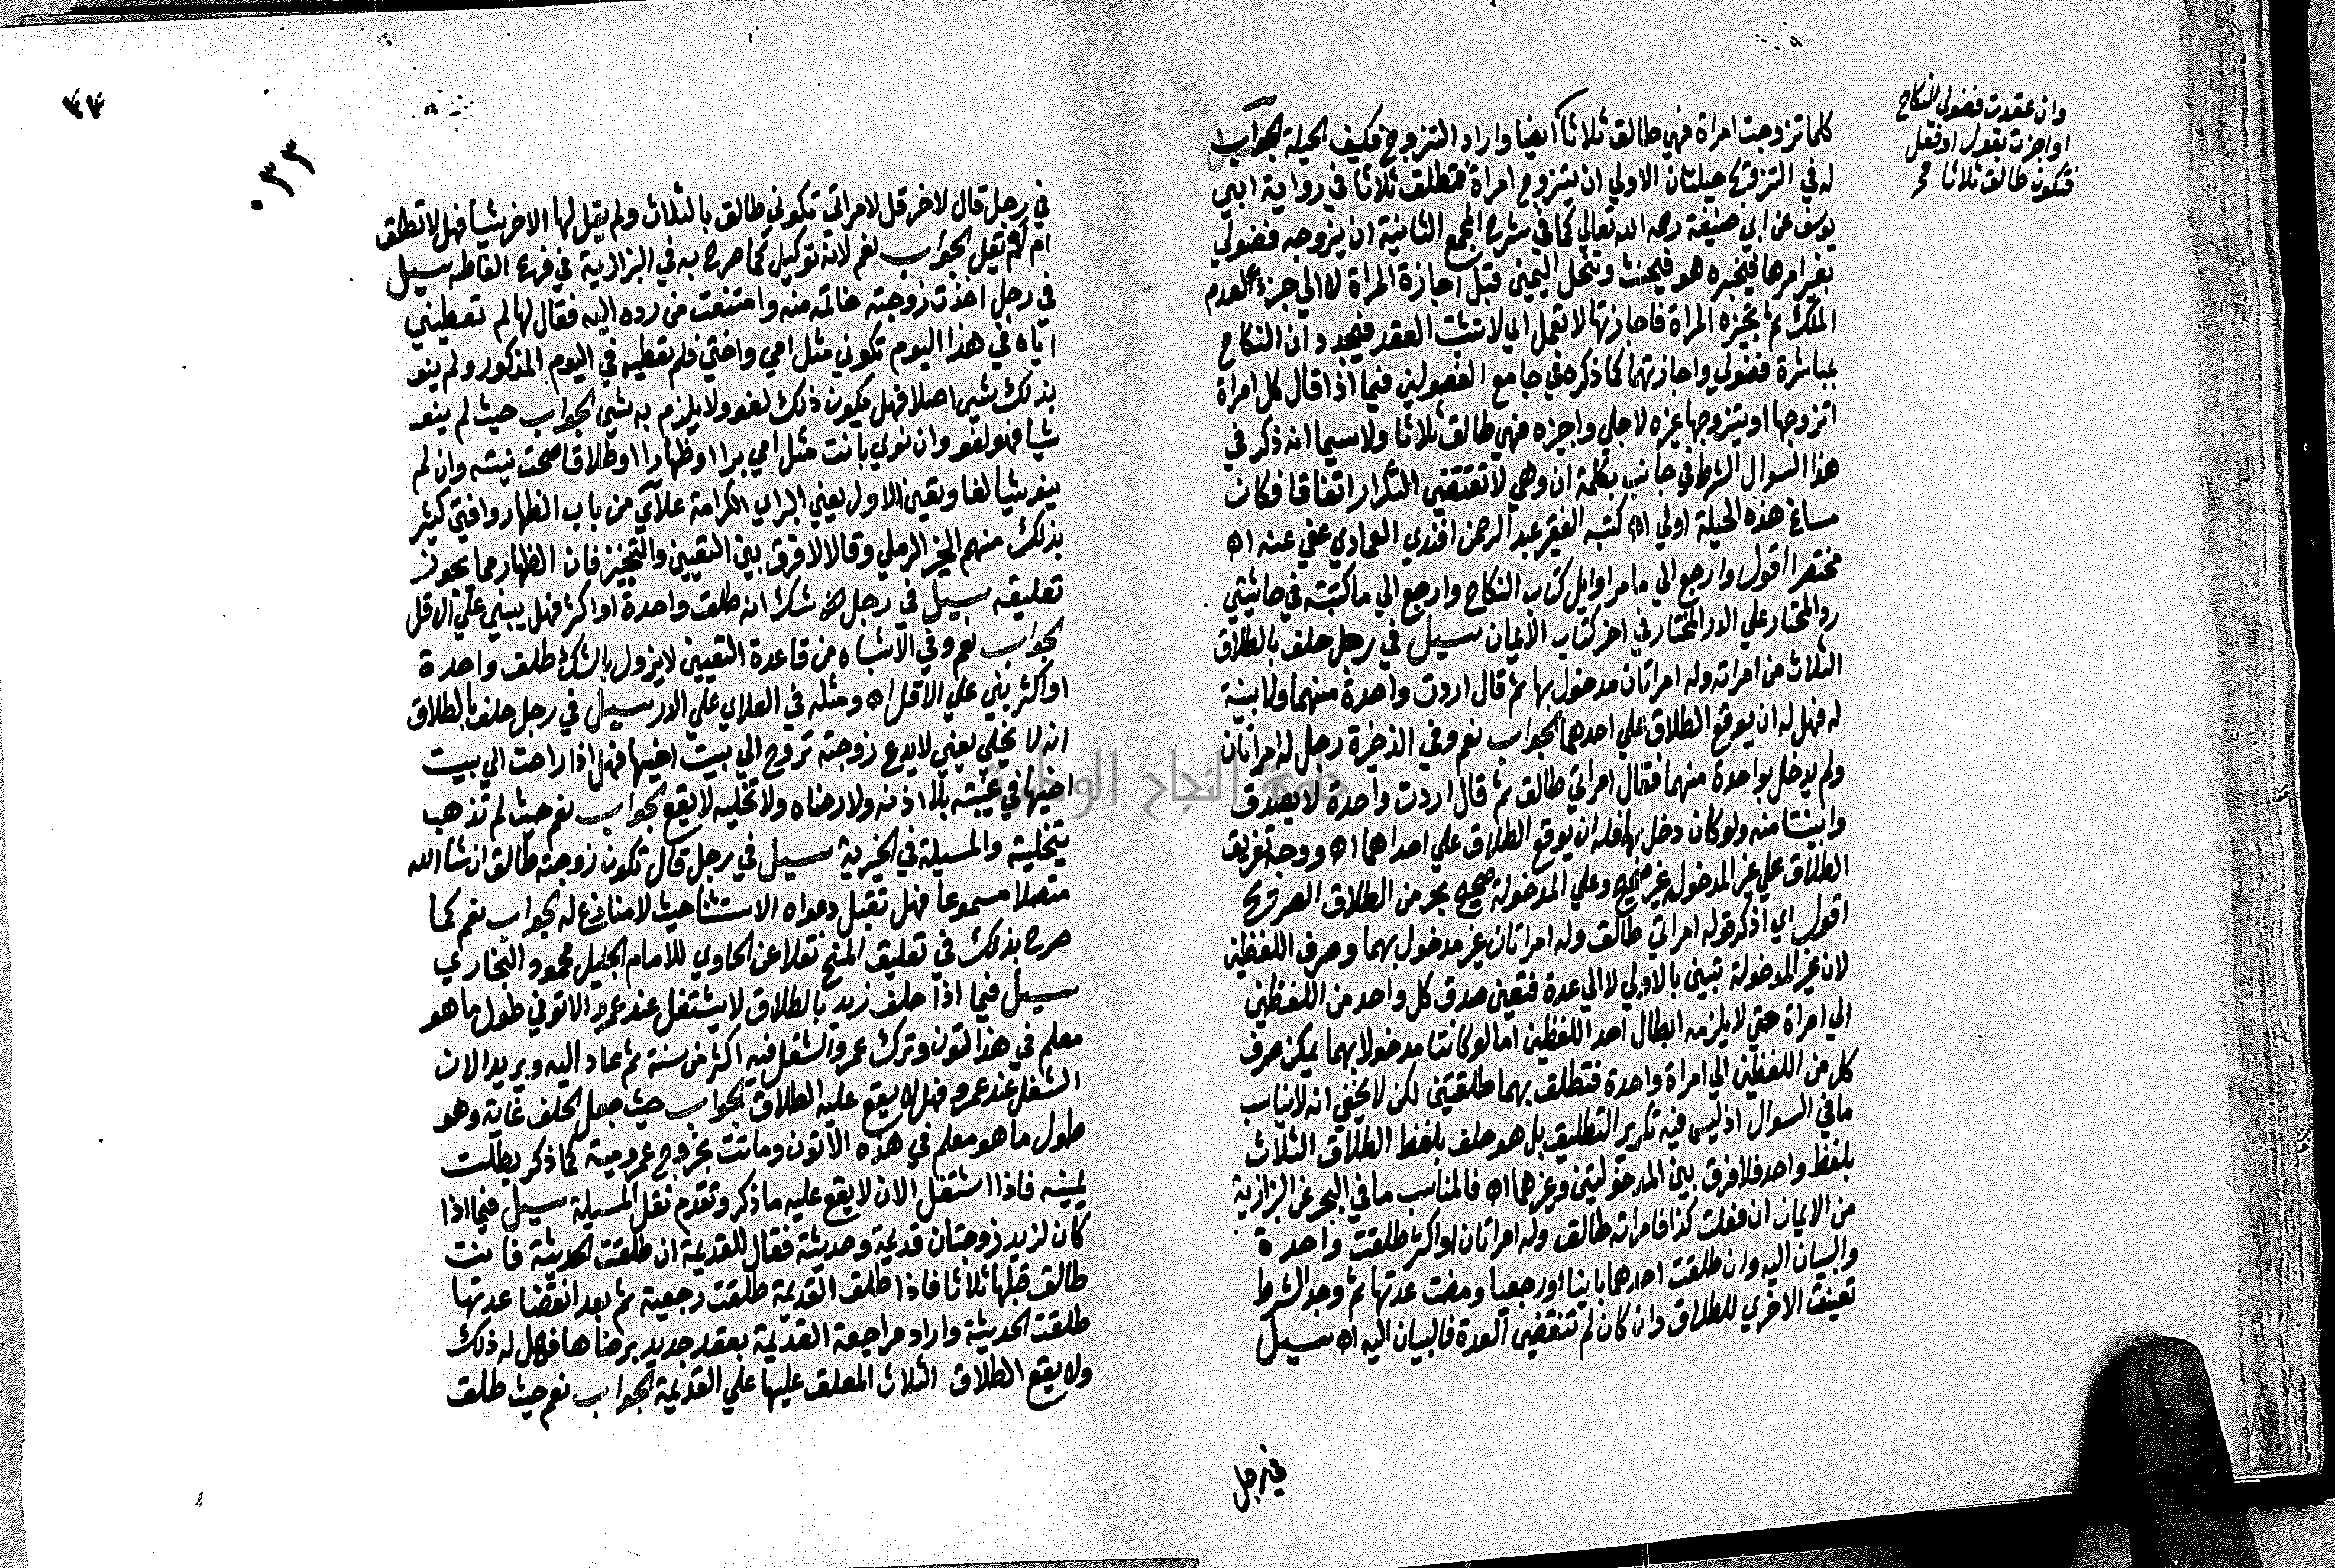 وان عقدت فضولي للنكاح
او اجزت بقول او فعل
فتكون طالق ثلاثا
كلما تزوجت امراة فهي طالق ثلاثا ايضا واراد التزوج فكيف الحيلة الجواب
له في التزوج حيلتان الاولي ان يتزوج امراة فتطلق ثلاثا في رواية ابي
يوسف عن ابي حنيفة رحمه الله تعالي كما في شرح المجمع الثانية ان يزوجه فضولي
بغير امرها فيخبره هو فيحنث وتنحل اليمين قبل اجازة المراة لا الي جزء لعدم
الملك ثم تجيزه المراة فاجازتها لا تعمل اي لا تثبت العقد فيجدد ان النكاح
بمباشرة فضولي واجازتهما كما ذكره في جامع الفصولين فيما اذا قال كل امراة
اتزوجها او يتزوجها غيره لاجلي واجيزه فهي طالق ثلاثا ولا سيما انه ذكر في
هذا السوال الشرط في جانب بكلمة ان وهي لا تقتضي التكرار اتفاقا فكان
مساغ هذه الحيلة اولي اه كتبه الفقير عبد الرحمن افندي العمادي عفي عنه اه
مختصرا اقول وارجع الي ما مر اوايل كتاب النكاح وارجع الي ما كتبته في حاشيتي
رد المحتار علي الدر المختار في اخر كتاب الايمان سيل في رجل حلف بالطلاق
الثلاث من امراته وله امراتان مدخول بها ثم قال اردت واحدة منهما ولا بينة
له فهل له ان يوقع الطلاق علي احدهما الجواب نعم وفي الذخيرة رجل له امراتان
ولم يدخل بواحدة منهما فقال امراتي طالق ثم قال اردت واحدة لا يصدق
وابينتا منه ولو كان دخل بها فله ان يوقع الطلاق علي احداهما اه ووجه تفريق
الطلاق علي غير المدخوله غير صحيح وعلي المدخولة صحيح بحر من الطلاق الصريح
اقول اي اذ كرر قوله امراتي طالق وله امراتان غير مدخول بهما وصرف اللفظين
لان غير المدخولة تبين بالاولي لا الي عدة فتعين صدق كل واحد من اللفظين
الي امراة حتي لا يلزمه ابطال احد اللفظين اما لو كانتا مدخولا بهما يمكن صرف
كل من اللفظين الي امراة واحدة فتطلق بهما طلقتين لكن لا يخفي انه لا يناسب
ما في السوال اذ ليس فيه تكرير التطليق بل هو حلف بلفظ الطلاق الثلاث
بلفظ واحد فلا فرق بين المدخولتين وغيرهما اه فالمناسب ما في البحر عن البزازية
من الايمان ان فعلت كذا فامراته طالق وله امراتان او اكثر طلقت واحدة
والبيان اليه وان طلقت احدهما باينا او رجعيا ومضت عدتها ثم وجد الشرط
تعينت الاخري للطلاق وان كان لم تنقضي العدة فالبيان اليه اه سيل
في رجل
٣٣
٠٣٣
في رجل قال لاخر قل لامراتي تكوني طالق بالثلاث ولم يقل لها الاخر شيا فهل لا تطلق
ام لم تقل الجواب نعم لانه توكيل كما صرح به في البزازية في فرع الفاظه سيل
في رجل اخذت زوجته خاتمه منه وامتنعت من رده اليه فقال لها لم تعطيني
اياه في هذا اليوم تكوني مثل امي واختي فلم تعطيه في اليوم المذكور ولم ينو
بذلك شي اصلا فهل يكون ذلك لغو ولا يلزم به شي الجواب حيث لم ينو
شيا فهو لغو وان نوي بانت مثل امي برا او ظهارا او طلاقا صحت نيته وان لم
ينو شيا لغا وتعين الاول يعني البر اي الكرامة علائي من باب الظهار وافتي كثير
بذلك منهم الخير الرملي وقالا لا فرق بين التعيين والتنجيز فان الظهار مما يجوز
تعليقه سيل في رجل شك انه طلق واحدة او اكثر فهل يبني علي الاقل
الجواب نعم وفي الاشباه من قاعدة اليقين لا يزول بالشك طلق واحدة
او اكثر بني علي الاقل اه ومثله في العلاي علي الدر سيل في رجل حلف بالطلاق
انه لا يخلي يعني لا يدع زوجته تروح الي بيت اخيها فهل اذا راحت الي بيت
اخيها في غيبته بلا اذنه ولا رضاه ولا تخليه لا يقع الجواب نعم حيث لم تذهب
بتخليته والمسيلة في الخيرية سيل في رجل قال تكون زوجته طالق ان شا الله
متصلا مسموعا فهل تقبل دعواه الاستثنا حيث لا منازع له الجواب نعم كما
صرح بذلك في تعليق المنح نقلا عن الحاوي للامام الجليل محمود البخاري
سيل فيما اذا حلف زيد بالطلاق لا يشتغل عند عمرو الاتوني طول ما هو
معلم في هذا التون وترك عمرو الشغل فيه اكثر من سنة ثم عاد اليه ويريد الان
الشغل عند عمرو فهل لا يقع عليه الطلاق الجواب حيث جعل الحلف غاية وهو
طول ما هو معلم في هذه الاتون وماتت بخروج عمرو حيه كما ذكر بطلت
يمينه فاذا اشتغل الان لا يقع عليه ما ذكر وتقدم نقل المسيلة سيل فيما اذا
كان لزيد زوجتان قديمة وحديثة فقال للقديمة ان طلقت الحديثة فانت
طالق قبلها ثلاثا فاذا طلق القديمة طلقت رجعية ثم بعد انقضا عدتها
طلقت الحديثة واراد مراجعة القديمة بعقد جديد برضاها فهل له ذلك
ولا يقع الطلاق الثلاث المعلق عليها علي القديمة الجواب نعم حيث طلق
جامعة النجاح الوطنية